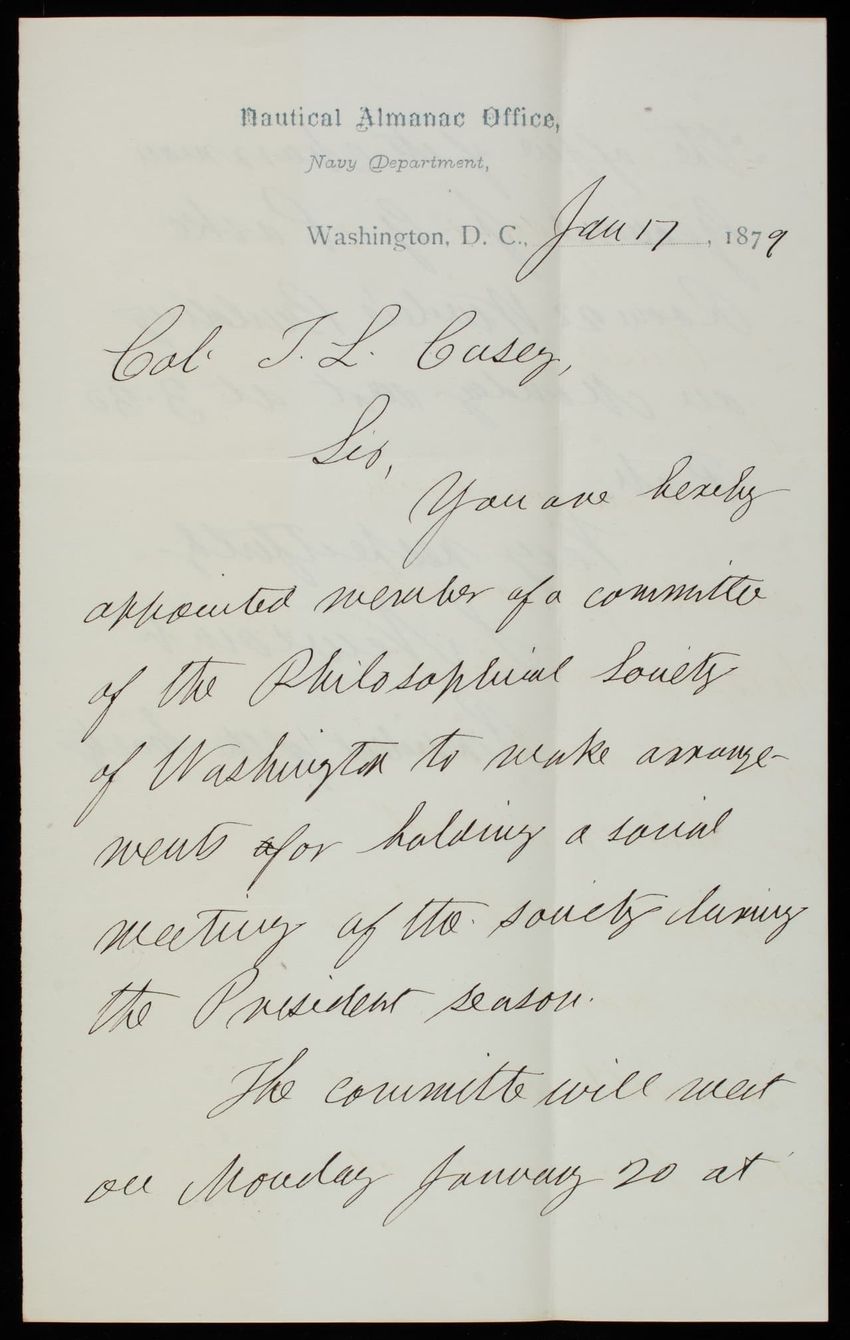 Nautical Almanac Office,
Navy Department,
Washington, D. C., Jan 17, 1879
Col. T. L. Casey,
Sir,
You are hereby
appointed member of a committee
of the Philosophical Society
of Washington to make arrange-
ments for holding a social
meeting of the society during
the President season.
The committe will meet
on Monday January 20 at